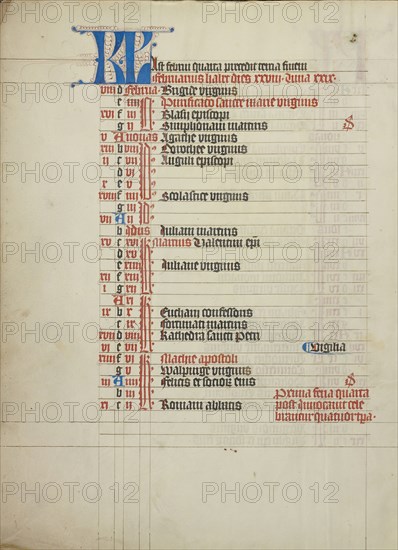 KL
Ast februi quarta precedit tercia finem
Februarius habet dies xxviii luna xxix
viii d Februa Brigide virginis
e iiii Purificacio sancte marie virginis
xvi f iii Blasii episcopi
g ii
v A Nonas Agathe virginis
xiii b viii Dorothee virginis
ii c vii
d vi
x e v
xviii f iiii Scolastice virginis
g iii
vii A ii
b Idus Iuliani martiris
xv c xvi Marcius Valentini epi
d xv
e xiiii Iuliane virginis
f
i g
A xi
ix b x Eucharii confessoris
c ix Fortunati martiris
xvii d viii Kathedra sancti Petri
vi e vii Vigilia
xiiii f vi Mathie apostoli
g v Walpurge virginis
iii A iiii Felicis et socior eius
b iii Prima feria quarta
post Inuocauit cele
xi c ii Romani abbatis
PHOTO 12